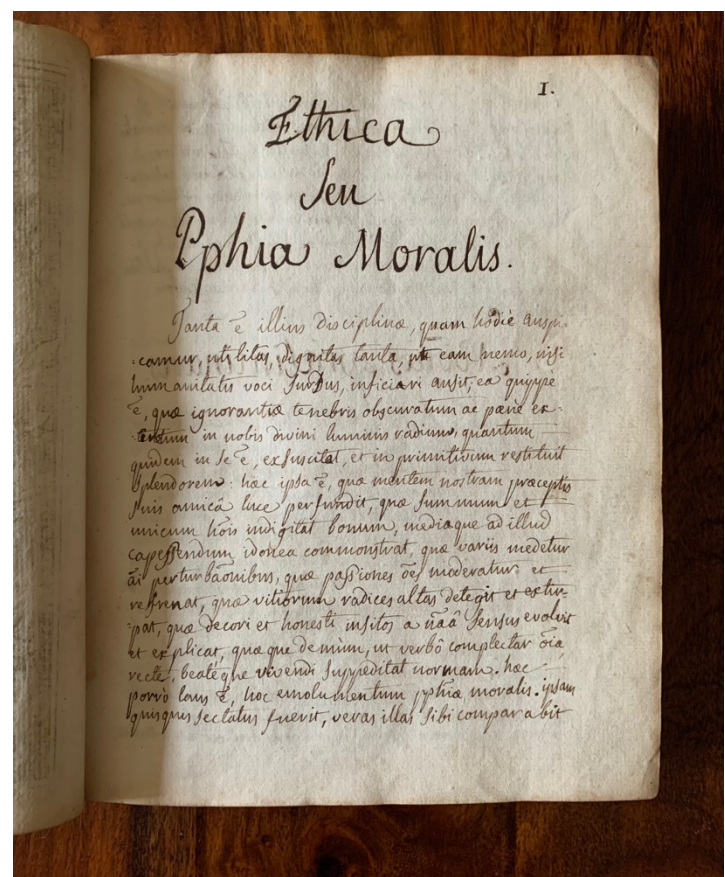 1.
Ethica
Seu
Pphia Moralis.
Tanta ē illius disciplinæ, quam hodie auspi-
camur, utilitas, dignitas tanta, ut eam nemo, nisi
humanitatis voci surdus, inficiari ausit, ea quippè
ē, quæ ignorantiæ tenebris obscuratum ac pæne ex-
in nobis divini luminis radium, quantum
quidem in se ē, exsuscitat, et in primitivum restituit
splendorem: hæc ipsa ē, quæ mentem nostram præceptis
suis amicâ luce perfundit, quæ summum et
unicum hōis indigitat bonum, mediaque ad illud
capessendum idonea commonstrat, quæ variis medetur
āi perturbāonibus, quæ passiones ōes moderatur et
refrenat, quæ vitiorum radices altas detegit et extir-
pat, quæ decori et honesti insitos a nāâ sensus evolvit
et explicat, quæque demùm, ut verbô complectar ōia
rectè, beatèque vivendi suppeditat normam. hæc
porrò laus ē, hoc emolumentum pphiæ moralis. ipsam
quisquis sectatus fuerit, veras illas sibi comparabit